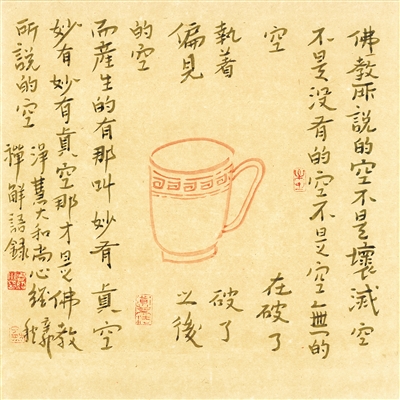 佛教所說的空不是壞滅空
不是沒有的空不是空無的
空
在破了
執着
破了
偏見
之後
的空
而產生的有那叫妙有真空
妙有妙有真空那才是佛教
所說的空
淨慧大和尚心經
禪解語錄